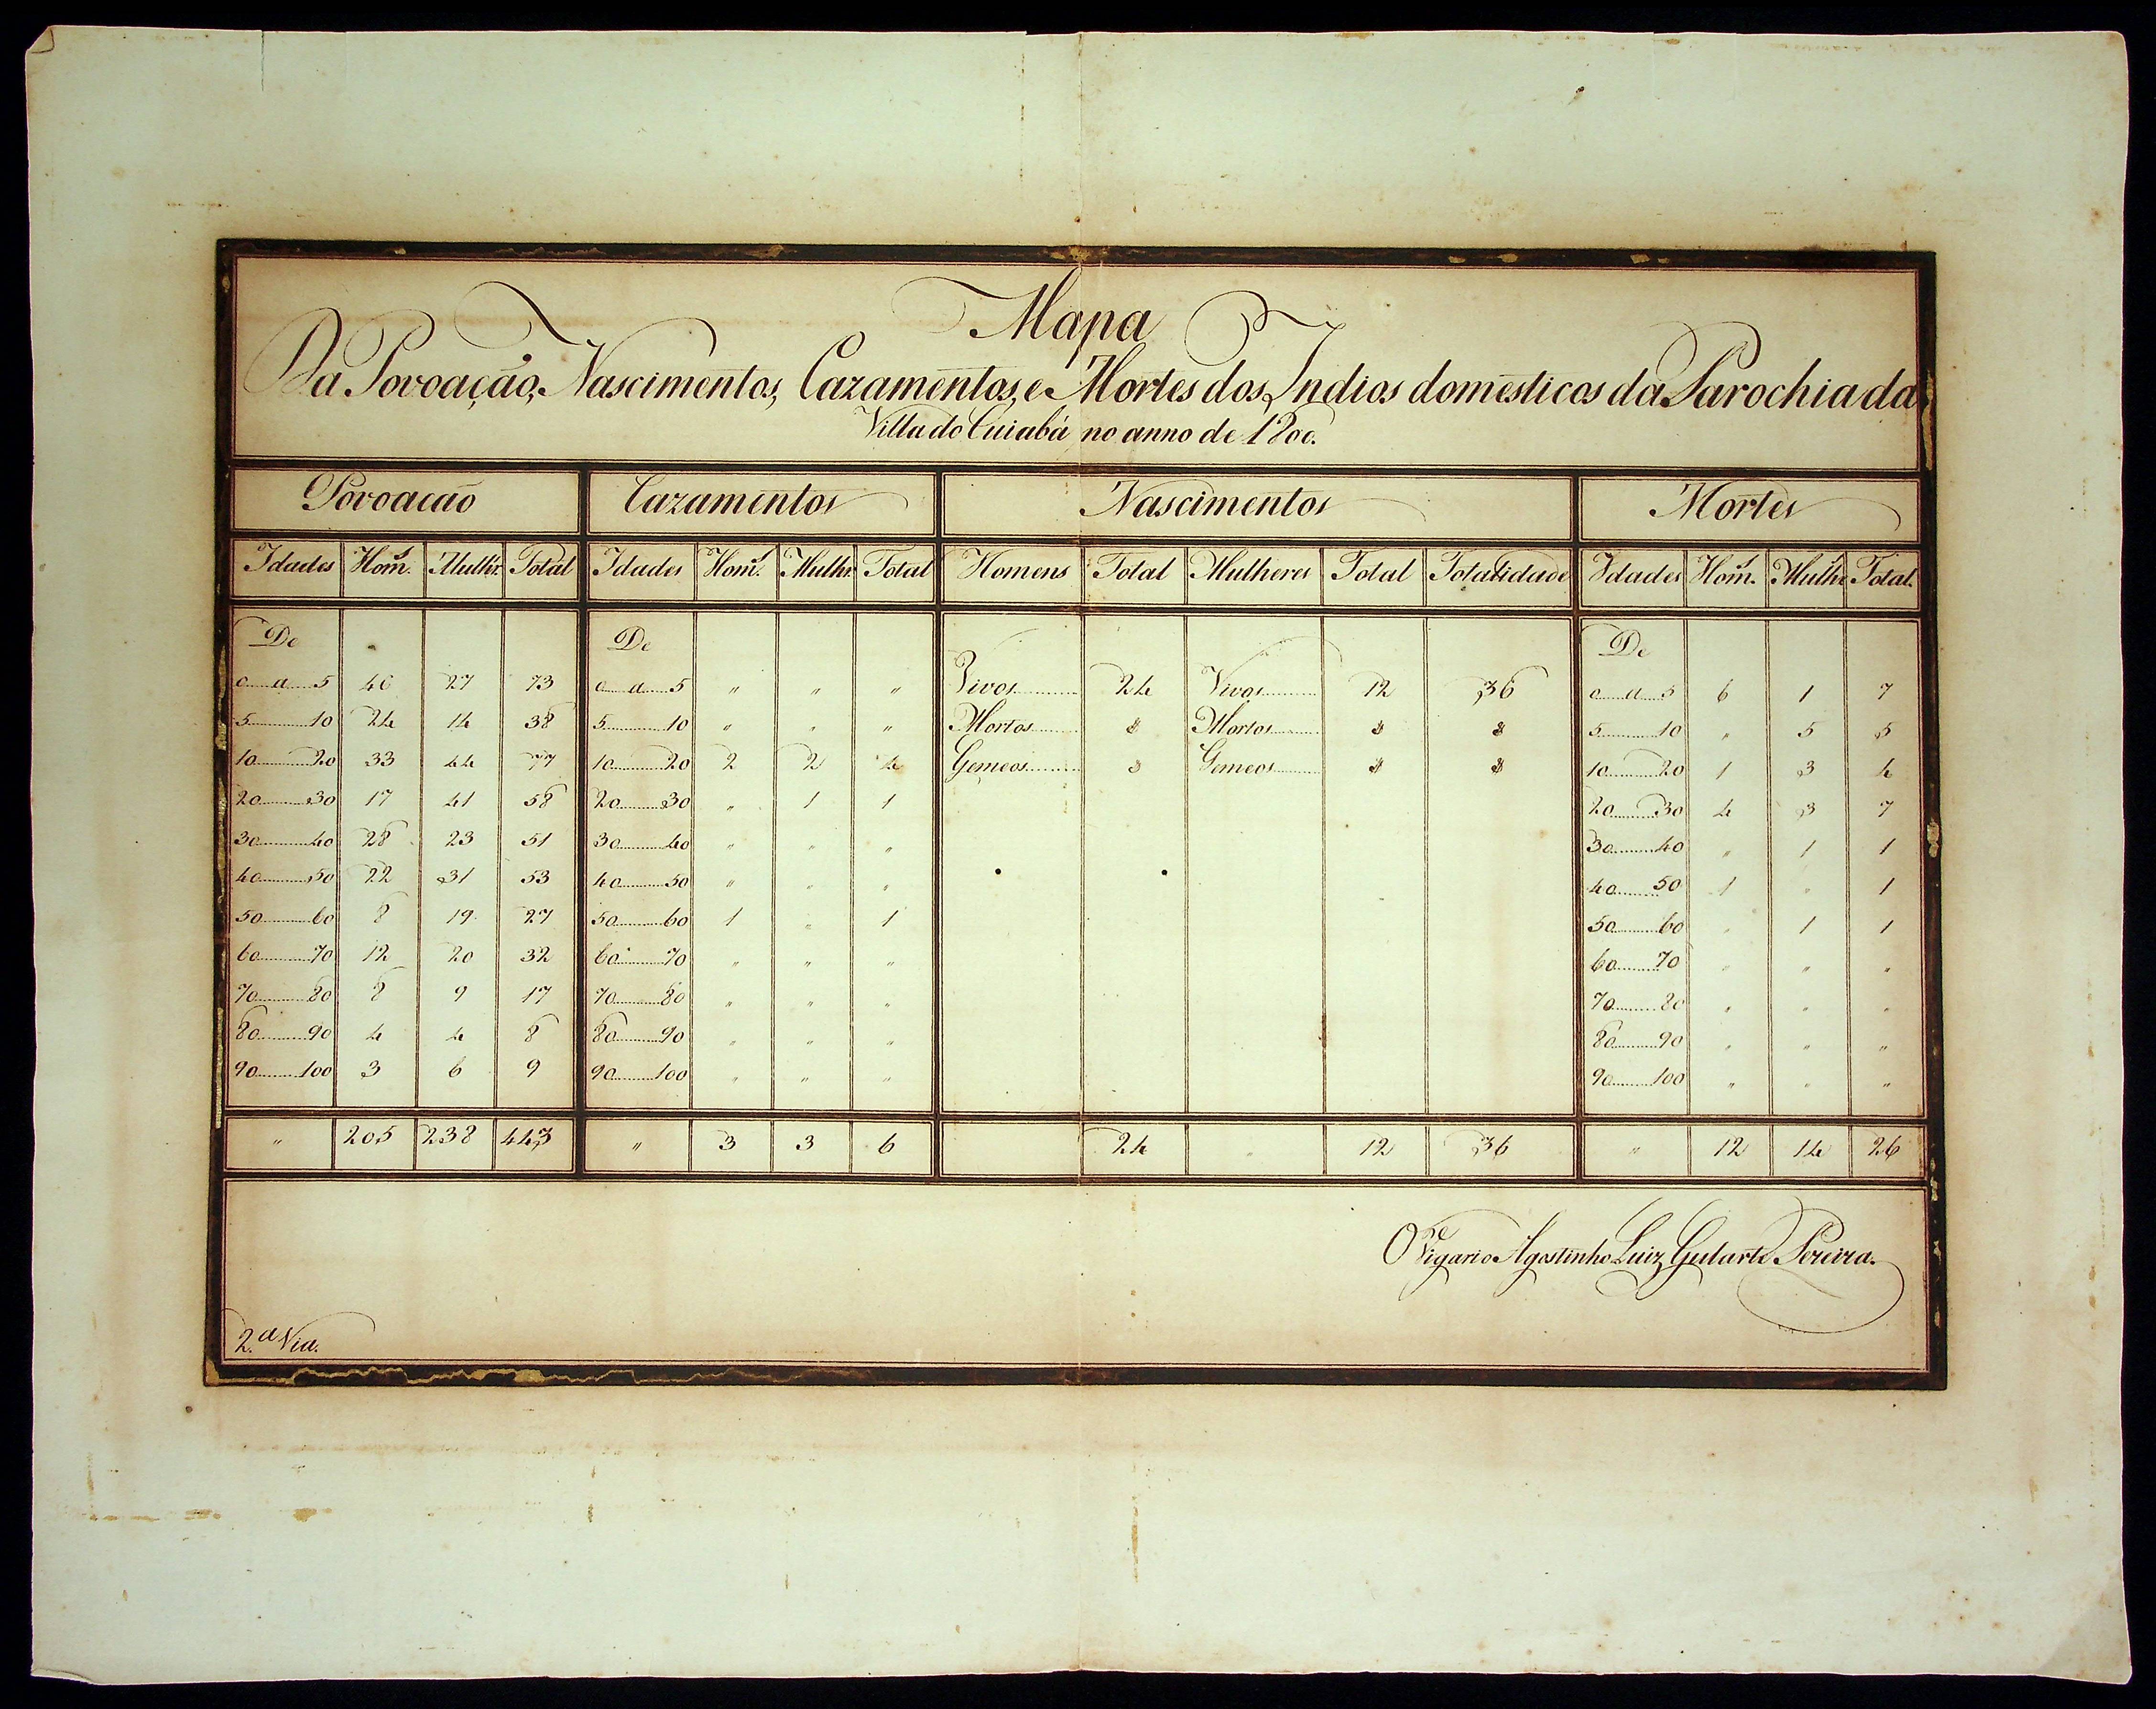 Mapa
Da Povoação, Nascimentos, Cazamentos, e Mortes dos Indios domesticos da Parochia da
Villa do Cuiabá no anno de 1800.
Povoação Cazamentos Nascimentos Mortes
Idades Hom.s Mulhr. Total Idades Hom.s Mulhr. Total Homens Total Mulheres Total Totalidade Idades Hom.s Mulhr. Total.
De De De
0 a 5 46 27 73 0 a 5 " " " Vivos 24 Vivos 12 36 0 a 5 6 1 7
5 10 24 14 38 5 10 " " " Mortos Mortos 5 10 " 5 5
10 20 33 44 77 10 20 2 2 4 Gemeos Gemeos 10 20 1 3 4
20 30 17 41 58 20 30 " 1 1 20 30 4 3 7
30 40 28 23 51 30 40 " " " 30 40 " 1 1
40 50 22 31 53 40 50 " " " 40 50 1 " 1
50 60 8 19 27 50 60 1 " 1 50 60 " 1 1
60 70 12 20 32 60 70 " " " 60 70 " " "
70 80 8 9 17 70 80 " " " 70 80 " " "
80 90 4 4 8 80 90 " " " 80 90 " " "
90 100 3 6 9 90 100 " " " 90 100 " " "
" 205 238 443 " 3 3 6 24 " 12 36 " 12 14 26
O Vigario Agostinho Luiz Gularte Pereira.
2.ª Via.